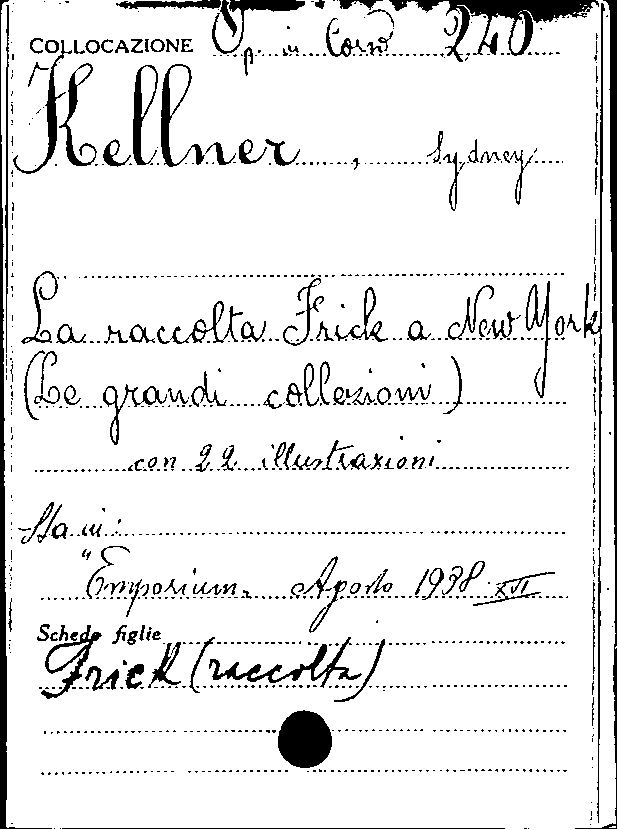 COLLOCAZIONE Op. in Cornº 240
Kellner, Sydney
La raccolta Frick a New York
(Le grandi collezioni)
con 22 illustrazioni
Sta in:
"Emporium. Agosto 1938 XVI
Schede figlie
Frick (raccolta)